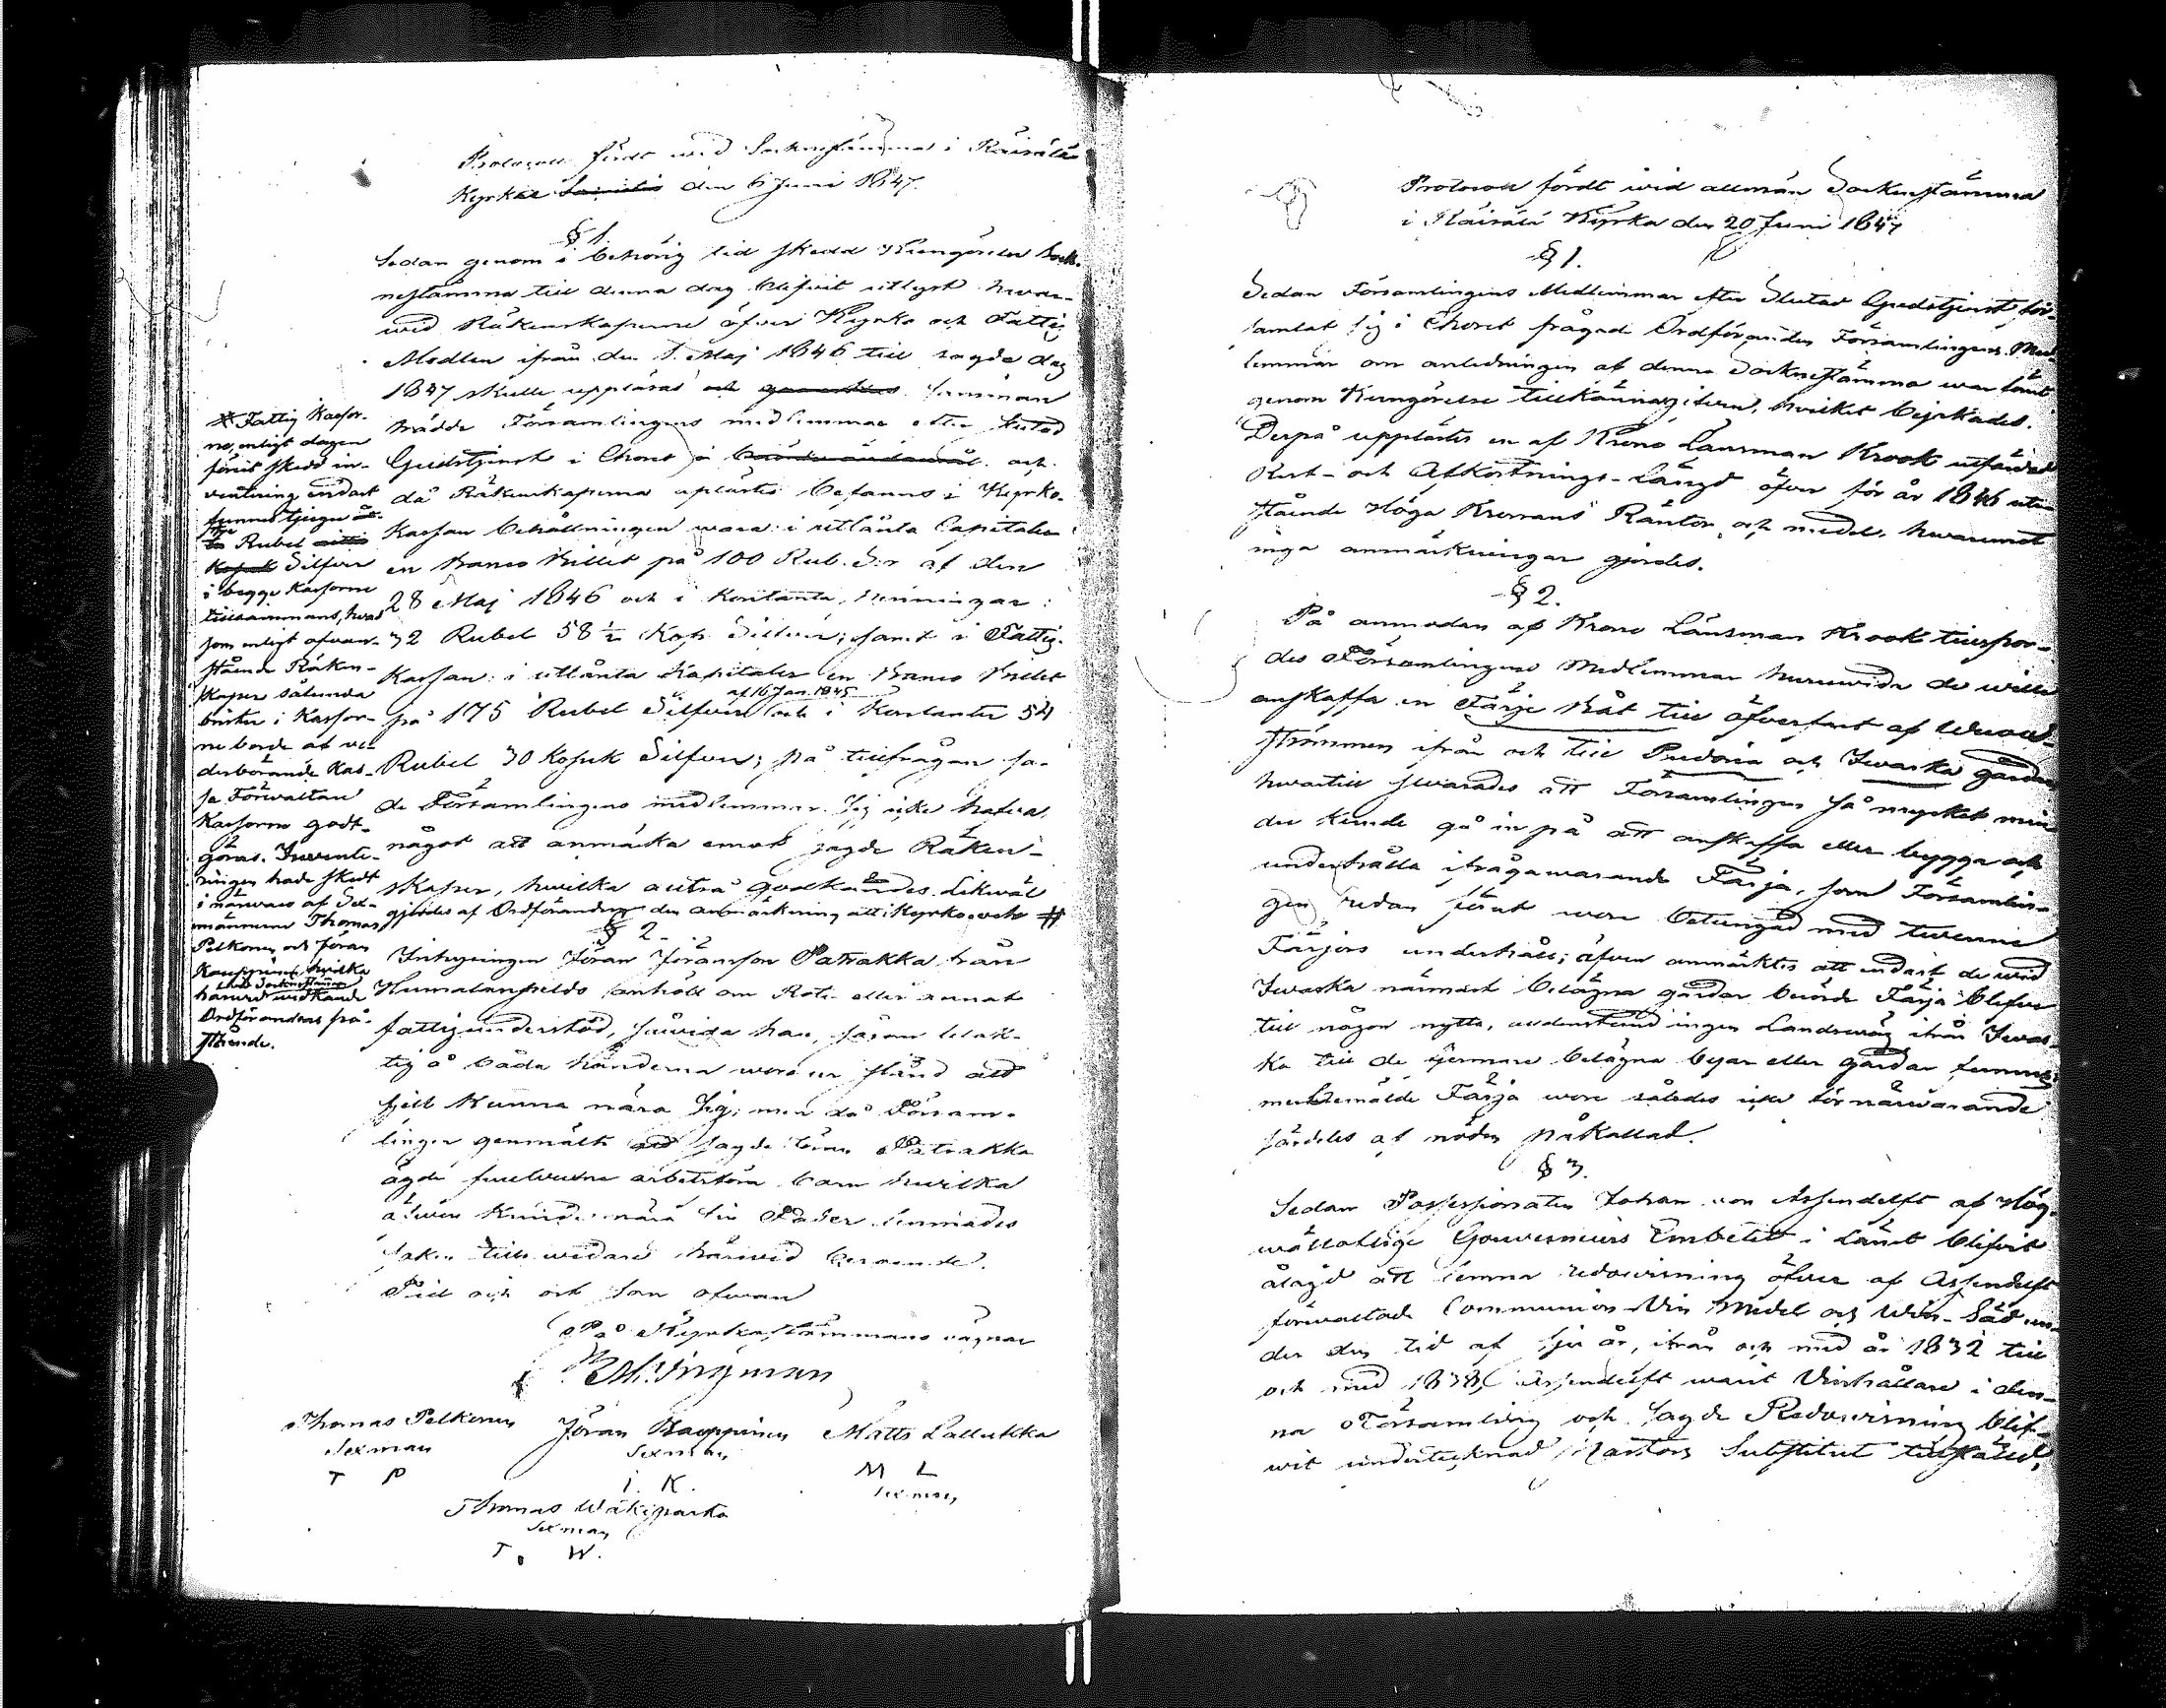 Protocoll fördt wid Sockneſtämma i Räisälä
Kyrka den 6 Juni 1847.
§ 1.
Sedan genom i behörig tid ſkedd Kungörelse Sock-
neſtämma till denna dag blifvit utlyst hvar-
wid Räkenskaperne öfver Kyrko och Fattig
Medlen ifrån den 1. Maj 1846 till sagde dag
1847 skulle uppläsas och ſamman
trädde Församlingens medlemmar efter ſlutad
Gudstjenst i Choret och
då Räkenskaperna uplästes befanns i Kyrko-
Kaſsan behållningen wara i utlånta Capitaler
en Banco Billet på 100 Rub. S:r af den
28 Maj 1846 och i Kontanta penningar:
32 Rubel 58 ½ Kop. Silfver; ſamt i Fattig-
Kaſsan: i utlånta Kapitaler en Banco Billet
af 16 Jan. 1845
på 175 Rubel Silfver och i Kontanter 54
Rubel 30 Kopek Silfver; på tillfrågan ſa-
de Församlingens medlemmar ſig icke hafva
något att anmärka emot ſagde Räken-
skaper, hwilka altså godkändes. Likwäl
gjordes af Ordföranden den anmärkning att i Kyrko- och #
# Fattig Kaſsor-
na, enligt dagen
förut ſkedd in-
ventering endast
funnos tjugu
Rubel
Silfver
i begge Kaſsorne
tillsammans, hvad
ſom enligt ofvan-
ſtående Räken-
ſkaper sålunda
brister i Kaſsor-
ne borde af ve-
derbörande Kas-
ſa Förvaltare
Kaſsorne godt-
göras. Invente-
ringen hade ſkedt
i närwaro af Sex-
männerne Thomas
Pelkonen och Jöran
Kauppinen hvilka
härwid widkände
Ordförandens på-
ſtående.
§ 2.
Inhysingen Jöran Jöransson Patrakka från
Humalanſelds anhöll om Rote- eller annat
fattigunderstöd, ſåwida han, ſåsom
tig å båda händerna wore ur ſtånd att
ſjelf kunna nära ſig; men då Försam-
lingen genmälte att ſagde Jöran Patrakka
ägde fullvuxne arbetsföra barn hwilka
äfven kunde nära ſin Fader lemnades
ſaken till widare härwid beroende.
Tid och ort ſom ofwan
På Kyrkoſtämmans vägnar
Ingman
Thomas Pelkonen
Sexman
T P
Jöran Kauppinen
Sexman
I. K.
Matts Lallukka
M L
Sexman
Thomas Wäkiparta
Sexman
T. W.
Protocoll fördt wid allmän Sockneſtämma
i Räisälä Kyrka den 20 Juni 1847
§ 1.
Sedan Församlingens Medlemmar efter Slutad Gudstjenst för-
ſamlat ſig i Choret frågade Ordföranden Församlingens Med-
lemmar om anledningen af denna Sockneſtämma war ſamt
genom Kungörelse tillkännagifven, hvilket bejakades.
Derpå upplästes en af Krono Länsman Krook utfärdad
Rest- och Afkortnings-Längd öfver för år 1846 ute-
ſtående Höga Kronans Räntor och medel, hwaremot
inga anmärkningar gjordes.
§ 2.
På anmodan af Krono Länsman Krook tillspor-
des Församlingens Medlemmar huruwida de wille
anſkaffa en Färje Båt till öfverfart af Wuox-
ſtrömmen ifrån och till Pudoria och Iwaska gårdar
hwartill ſwarades att Församlingen ſå mycket min-
dre kunde gå in på att anſkaffa eller bygga och
underhålla ifrågawarande Färja, ſom Församlin-
gen redan förut wore betungad med twenne
Färjors underhåll; äfven anmärktes att endast de wid
Iwaska närmast belägna gårdar borde Färja blefve
till någon nytta, alldenstund ingen Landswäg ifrån Iwas-
ka till de fjermare belägna byar eller gårdar funnes;
merbemälde Färja wore således icke för närwarande
ſärdeles af nöden påkallad.
§ 3.
Sedan Poſseſsionaten Johan von Aſsendelft af Hög-
wällofliga Gouverneurs Embetet i Länet blifvit
ålagd att lemna redowisning öfver af Aſsendelft
förwaltade Communion Vin Medel och Win-Säd un-
der den tid af ſju år, ifrån och med år 1832 till
och med 1838, Aſsendelft warit Vinhållare i den-
na Församling och ſagde Redowisning blif-
wit undertecknad Pastors Subſtitut tillſtäld,